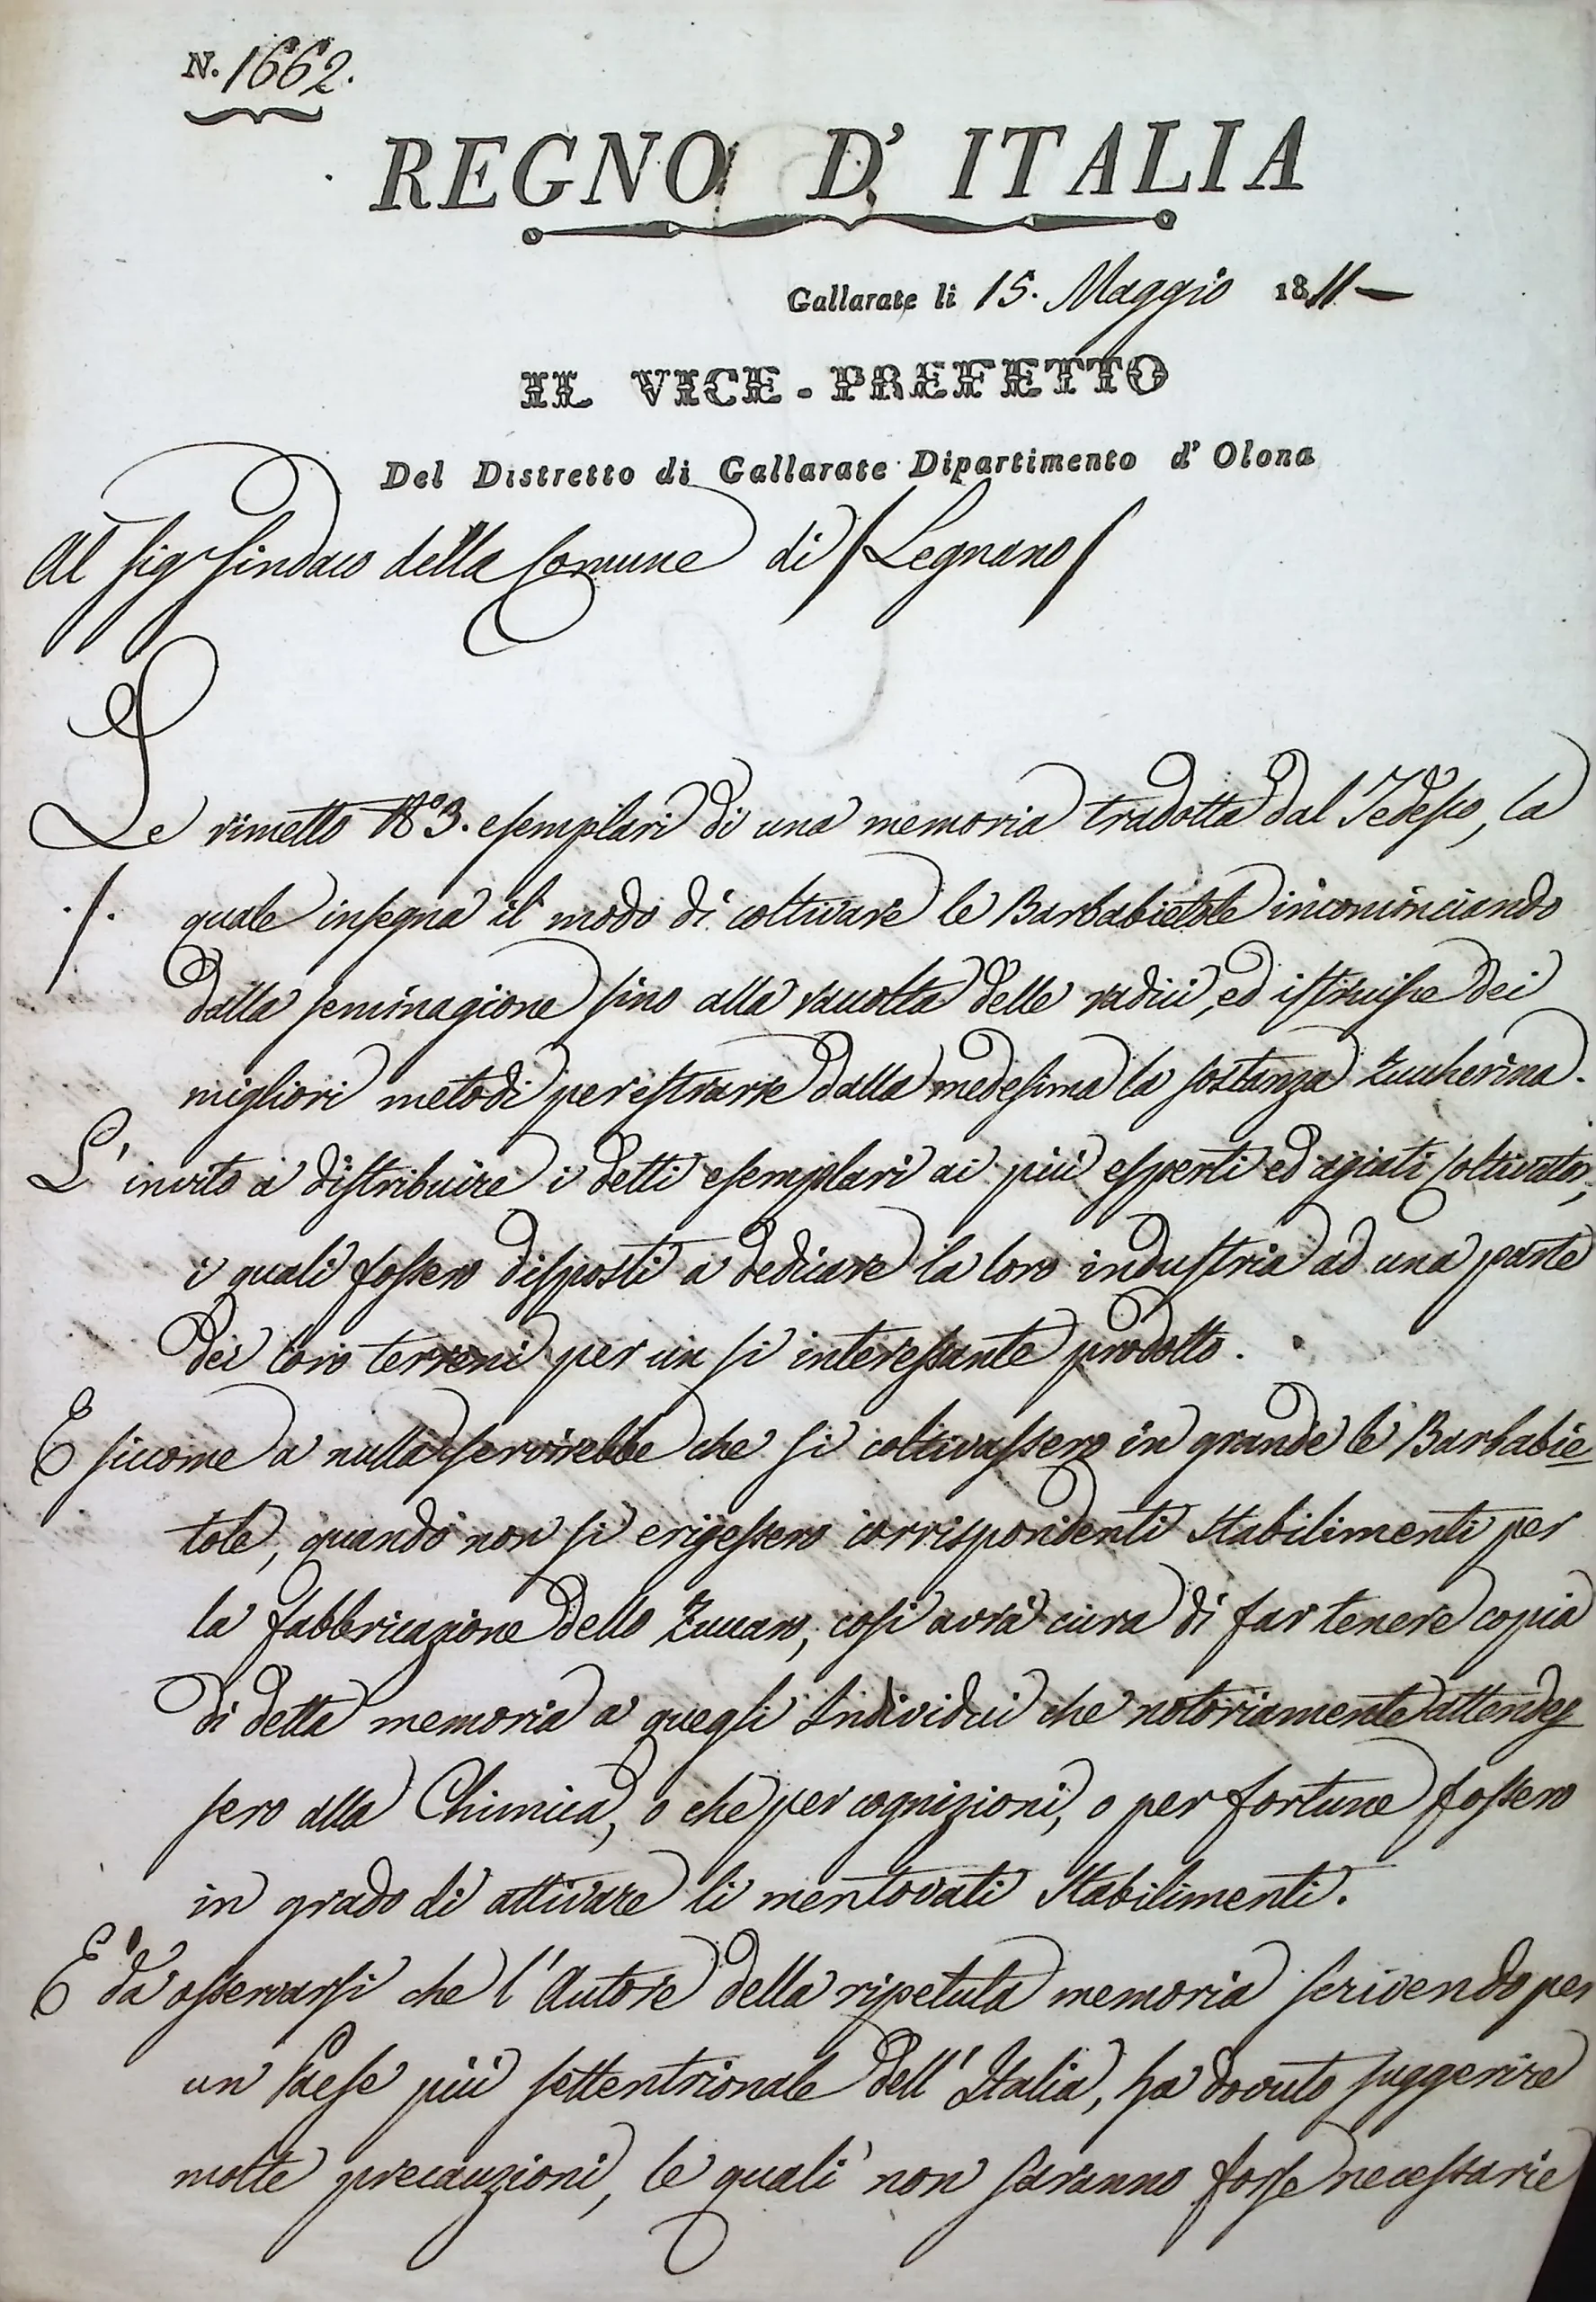 N. 1662.
REGNO D' ITALIA
Gallarate li 15. Maggio 1811
IL VICE-PREFETTO
Del Distretto di Gallarate Dipartimento d' Olona
Al Sig Sindaco della Comune di Legnano
Le rimetto N.° 3. esemplari di una memoria tradotta dal Tedesco, la
quale insegna il modo di coltivare le Barbabietole incominciando
dalla seminagione sino alla raccolta delle radici, ed istruisce dei
migliori metodi per estrarre dalla medesima la sostanza Zuccherina.
L' invito a distribuire i detti esemplari ai più esperti ed agiati Coltivatori,
i quali fossero disposti a dedicare la loro industria ad una parte
dei loro terreni per un si interessante prodotto.
E siccome a nulla servirebbe che si coltivassero in grande le Barbabie
tole, quando non si erigessero corrispondenti Stabilimenti per
la fabbricazione dello Zuccaro, così avrà cura di far tenere copia
di detta memoria a quegli Individui che notoriamente attendes
sero alla Chimica, o che per cognizioni, o per fortune fossero
in grado di attivare li mentovati Stabilimenti.
E' da osservarsi che l' Autore della ripetuta memoria scrivendo per
un Paese più settentrionale dell' Italia, ha dovuto suggerire
molte precauzioni, le quali non saranno forse necessarie